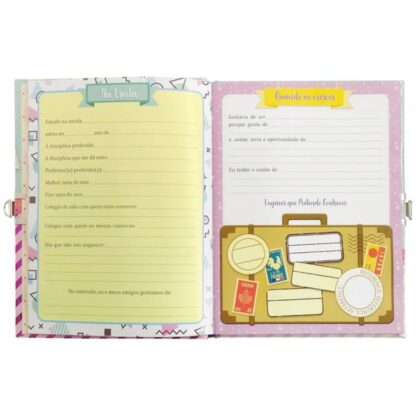 Na Escola
Estudo na escola
estou no ano do
A disciplina preferida:
A disciplina que me dá sono:
Professor(a) preferido(a):
Melhor nota do ano:
Pior nota do ano:
Colegas de sala com quem mais converso:
Colegas com quem eu menos converso:
Dia que não vou esquecer:
No intervalo, eu e meus amigos gostamos de:
Quando eu crescer
Gostaria de ser
porque gosto de
e, assim, teria a oportunidade de
Eu tenho o sonho de
Lugares que Pretendo Conhecer
FRANCE
CANADA